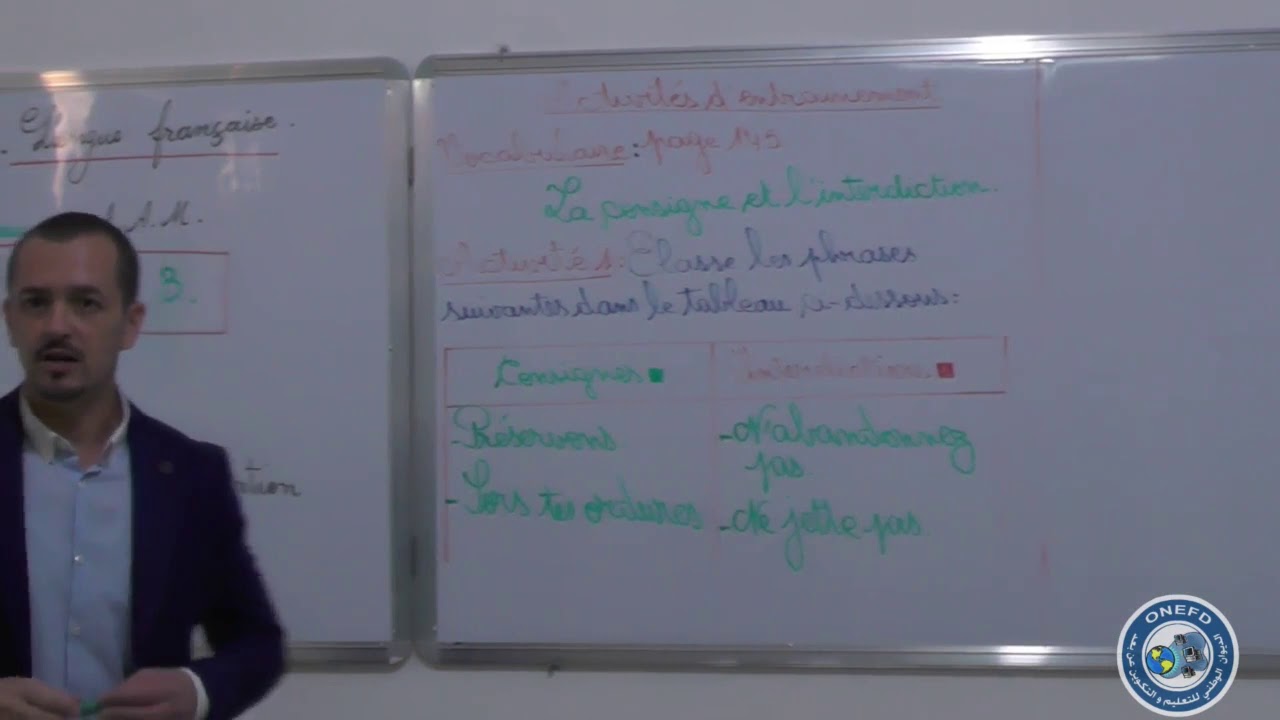 Langue française.
A.M.
3.
ation
Activités d'entrainement
Vocabulaire : page 145
La consigne et l'interdiction.
Activité 1: Classe les phrases
suivantes dans le tableau ci-dessous:
Consignes
Interdiction
-Réservons
-N'abandonnez
pas
- Sors tes ordures
-Ne jette pas
ONEFD
الديوان الوطني للتعليم و التكوين عن بعد